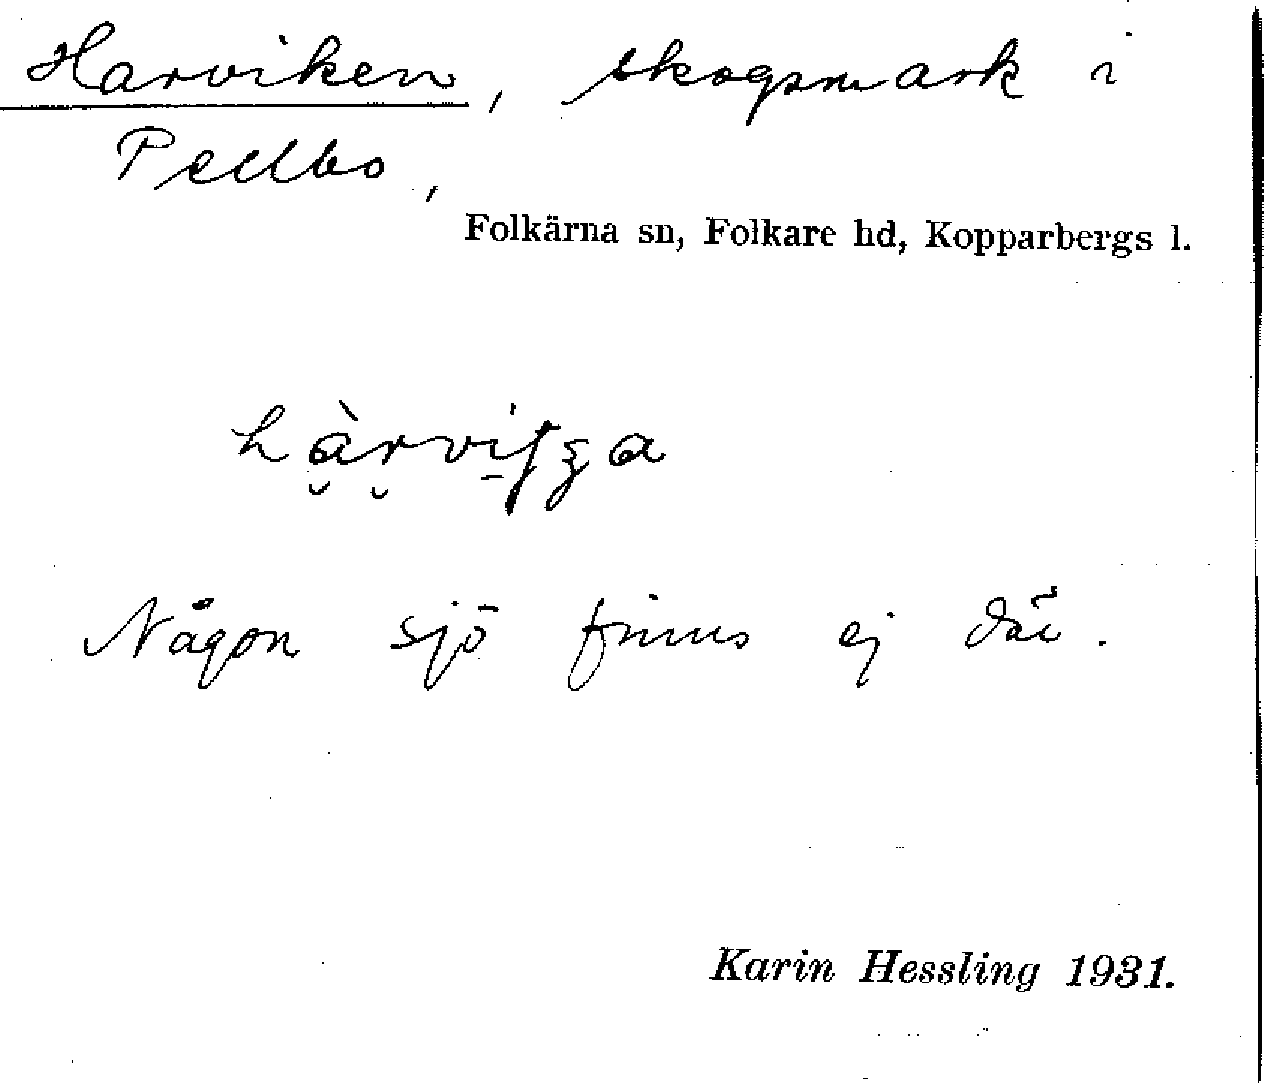 Harviken, skogsmark i
Pellbo,
Folkärna sn, Folkare hd, Kopparbergs l.
Någon sjö finns ej där.
Karin Hessling 1931.